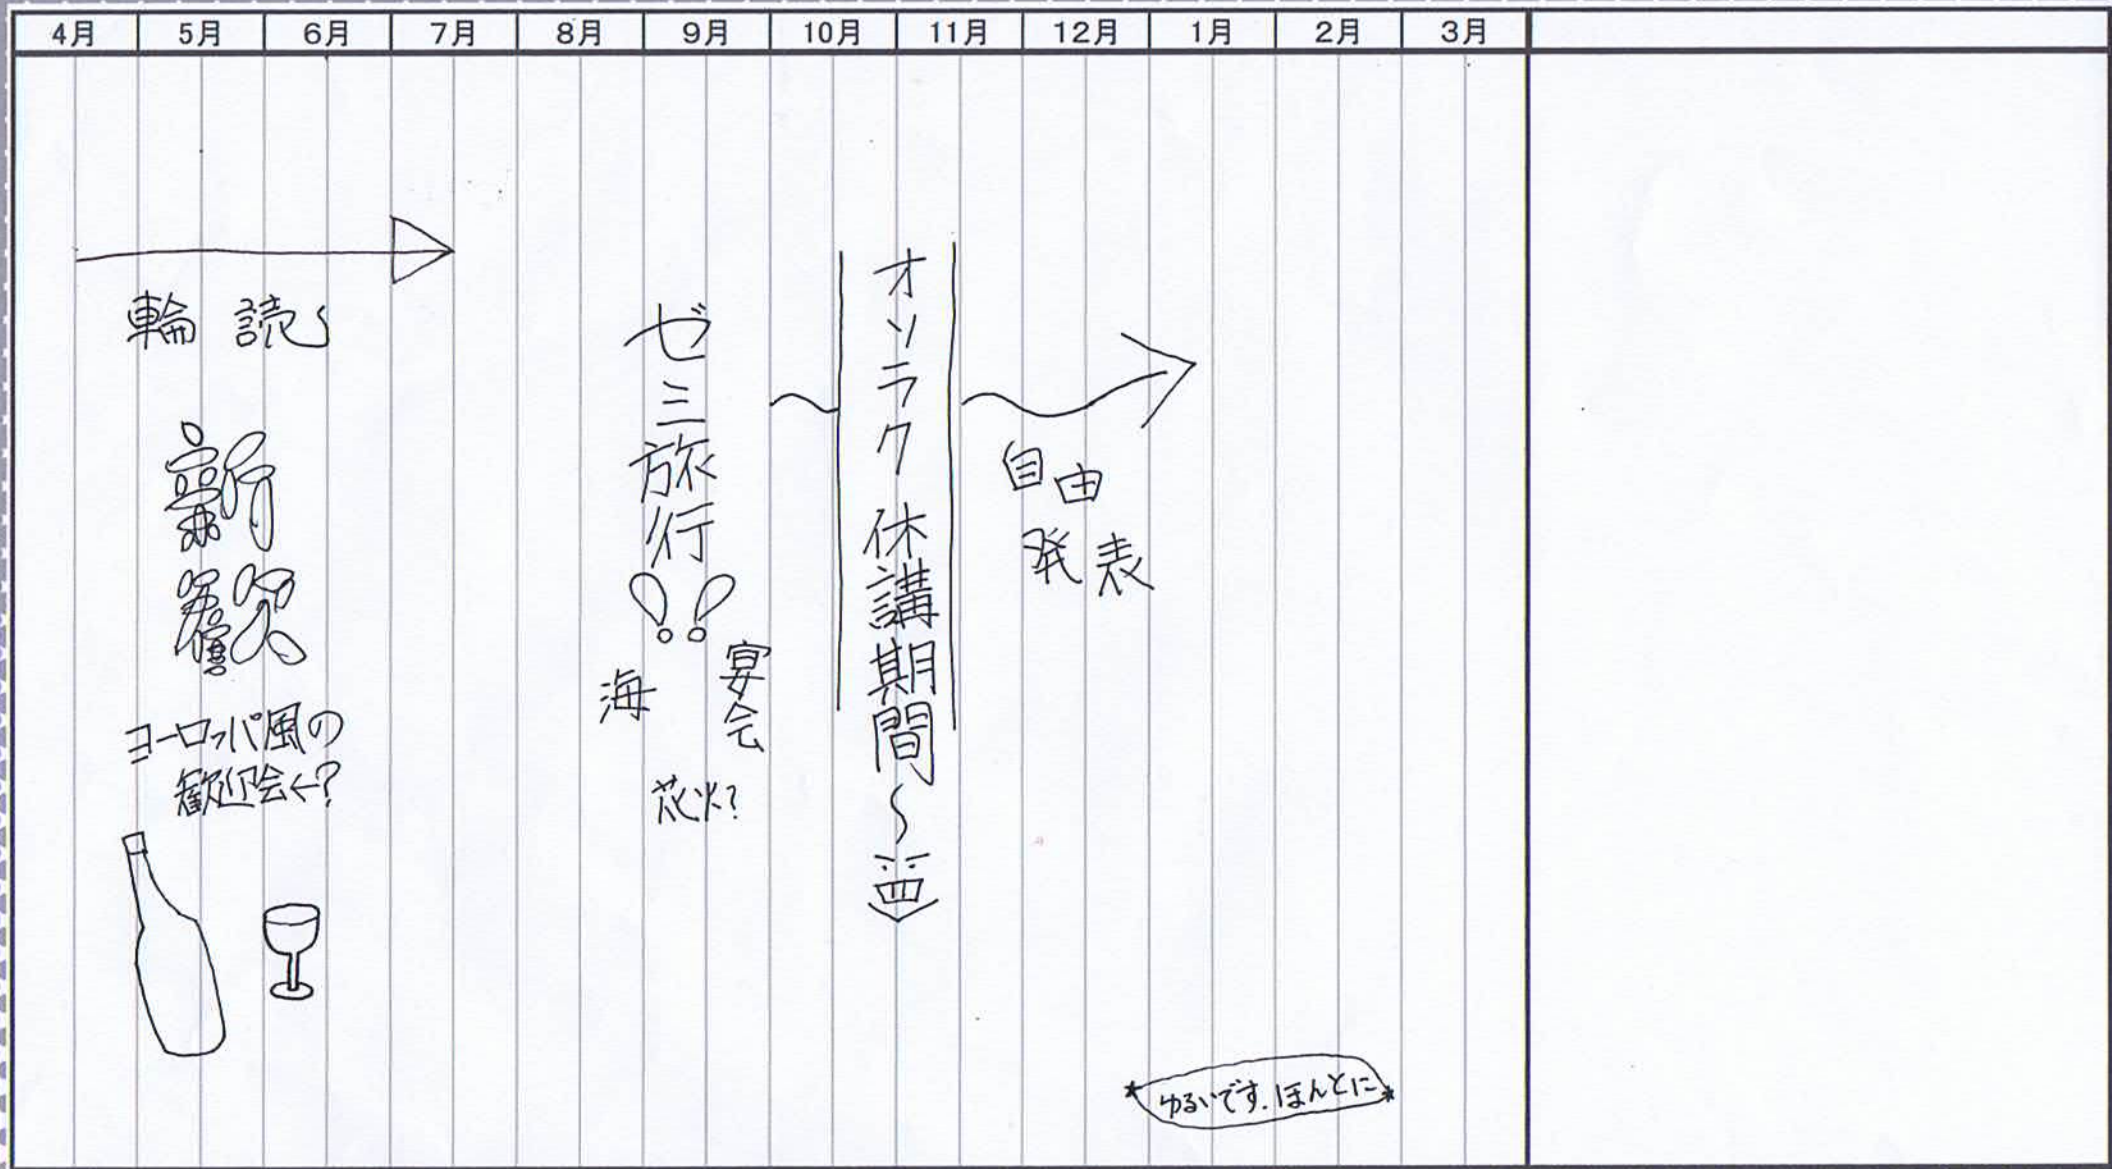 4月 5月 6月 7月 8月 9月 10月 11月 12月 1月 2月 3月
輪読
新歓
ヨーロッパ風の
歓迎会←?
ゼミ旅行!!
海
宴会
花火?
オソラク休講期間〜
自由
発表
ゆるいです.ほんとに